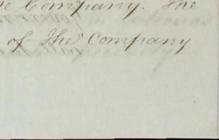 Company. The
of the Company